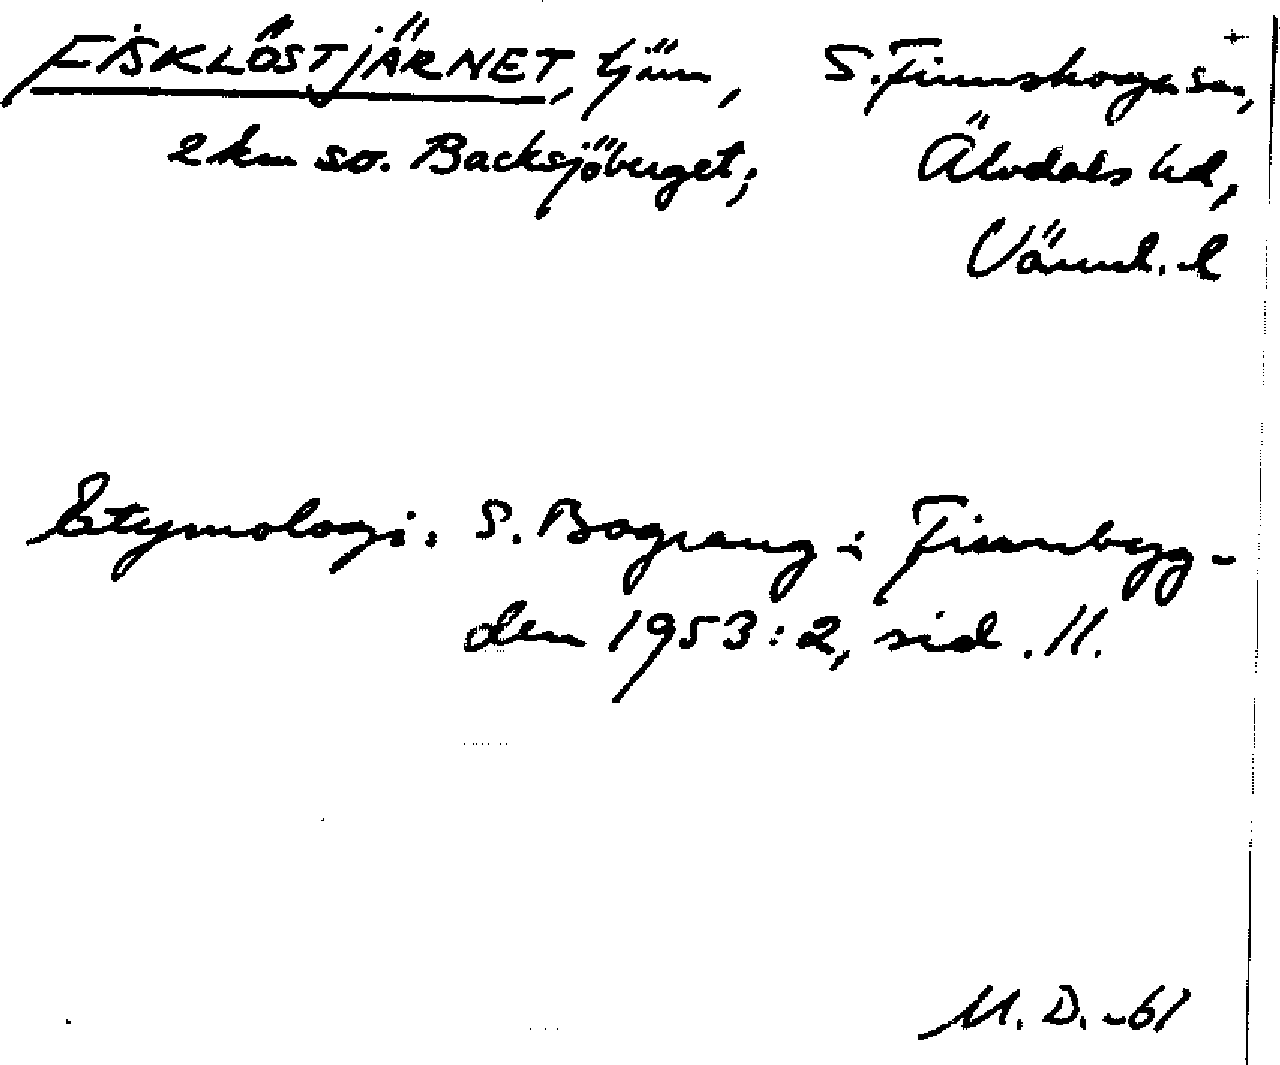 FISKLÖSTJÄRNET, tjärn, S. Finnskoga sn,
2 km so. Backsjöberget; Älvdals hd,
Värml. l
Etymologi: S. Bograng i Finnbyg-
den 1953:2, sid. 11.
M. D. -61